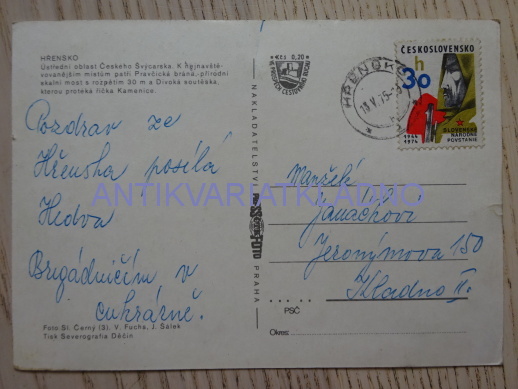 HŘENSKO
Ústřední oblast Českého Švýcarska. K nejnavště-
vovanějším místům patří Pravčická brána,-přírodní
skalní most s rozpětím 30 m a Divoká soutěska,
kterou protéká říčka Kamenice.
Kčs 0,20
ČESKOSLOVENSKO
30
h
SLOVENSKÉ
NÁRODNÍ
POVSTÁNÍ
1944
1974
HŘENSKO
Pozdrav ze
Hřenska posílá
Hedva
Brigádničím v
cukrárně.
ANTIKVARIATKLADNO
NAKLADATELSTVÍ
PRESSFOTO
PRAHA
Manželé
Janáčkovi
Jeronýmova 150
Kladno II.
PSČ
Okres:
Foto Sl. Černý (3), V. Fuchs, J. Sálek
Tisk Severografia Děčín